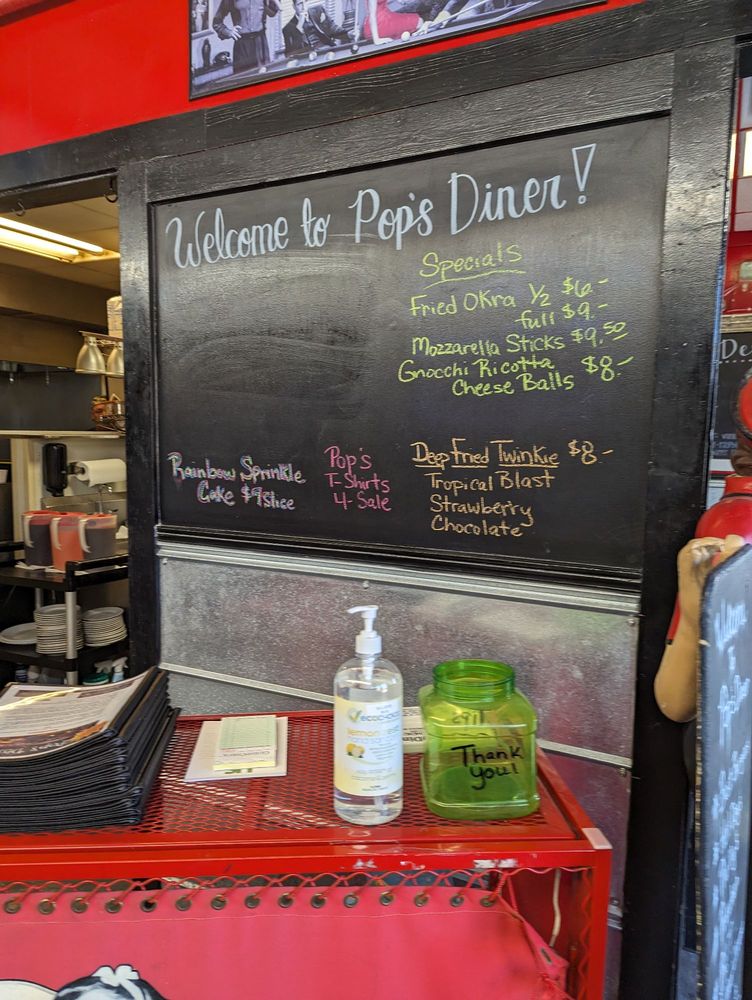 Welcome to Pop's Diner!
Specials
Fried Okra ½ $6.-
full $9.-
Mozzarella Sticks $9.50
Gnocchi Ricotta
Cheese Balls $8.-
Rainbow Sprinkle
Cake $9 slice
Pop's
T-Shirts
4-Sale
Deep Fried Twinkie $8-
Tropical Blast
Strawberry
Chocolate
lemon
Thank
you!
Welcome
to